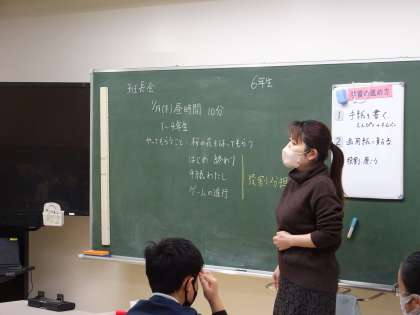 班長会
6年生
昼時間 10分
1~4年生
やってもらうこと・桜の花をはってもらう
はじめ 終わり
手紙わたし
ゲームの進行
役割分担
計画の進め方
1 手紙を書く
2 画用紙に
役割